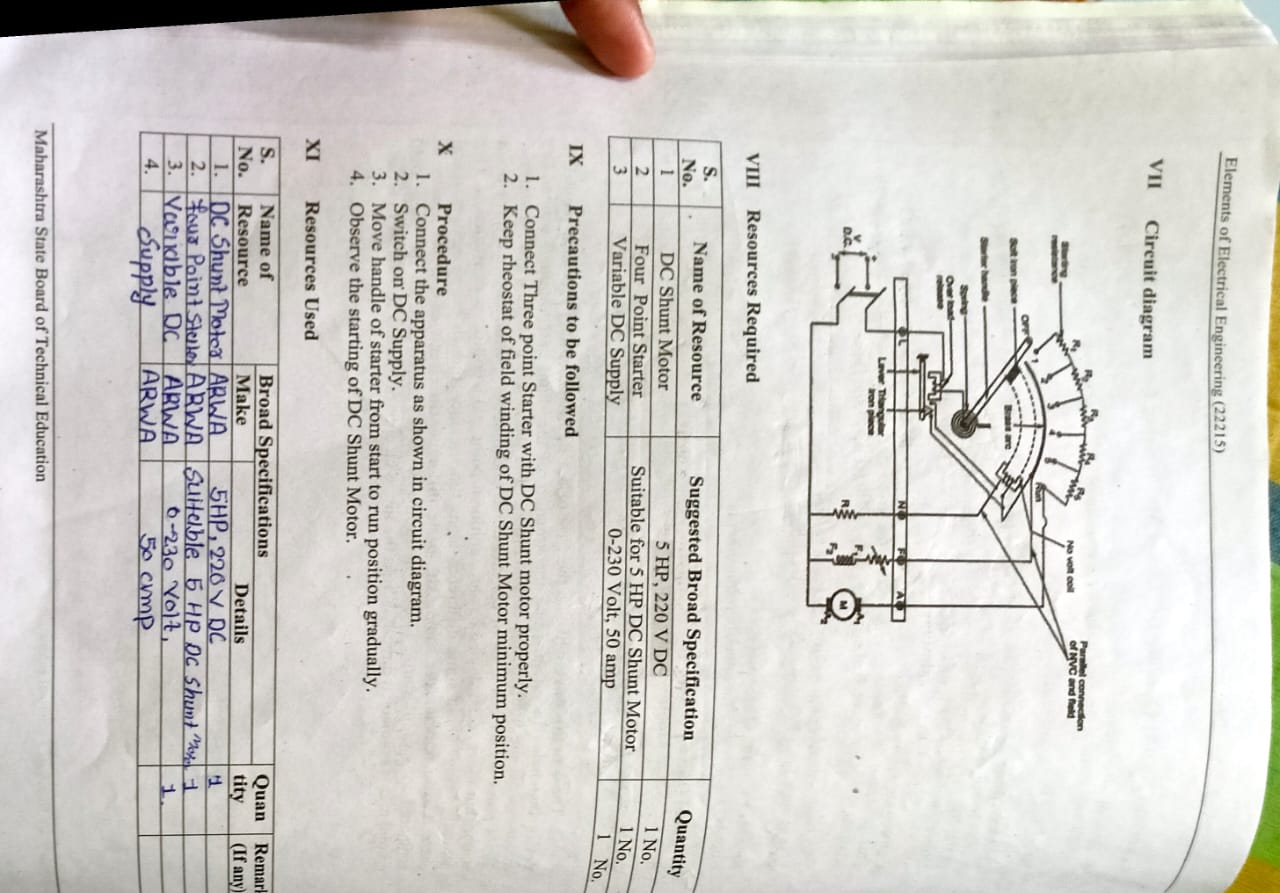 Elements of Electrical Engineering (22215)
VII Circuit diagram
R1 R2 R3 R4 R5
Starting
resistance
No volt coil
Parallel connection
of NVC and field
1 2 3 4 5
Run
OFF
Soft iron piece
Brass arc
Starter handle
Spring
Over load
release
L N F A
Lever Triangular
iron piece
V
D.C.
+
-
R F1 F2 M
VIII Resources Required
S. No. Name of Resource Suggested Broad Specification Quantity
1 DC Shunt Motor 5 HP, 220 V DC 1 No.
2 Four Point Starter Suitable for 5 HP DC Shunt Motor 1 No.
3 Variable DC Supply 0-230 Volt, 50 amp 1 No.
IX Precautions to be followed
1. Connect Three point Starter with DC Shunt motor properly.
2. Keep rheostat of field winding of DC Shunt Motor minimum position.
X Procedure
1. Connect the apparatus as shown in circuit diagram.
2. Switch on DC Supply.
3. Move handle of starter from start to run position gradually.
4. Observe the starting of DC Shunt Motor.
XI Resources Used
S. Name of Broad Specifications Quan Remark
No. Resource Make Details tity (If any)
1. DC Shunt Motor ARWA 5HP, 220 V DC 1
2. four Point Ste ARWA Suitable 5 HP DC Shunt Motor 1
3. Variable DC ARWA 0-230 Volt, 1.
4. Supply ARWA 50 amp
Maharashtra State Board of Technical Education